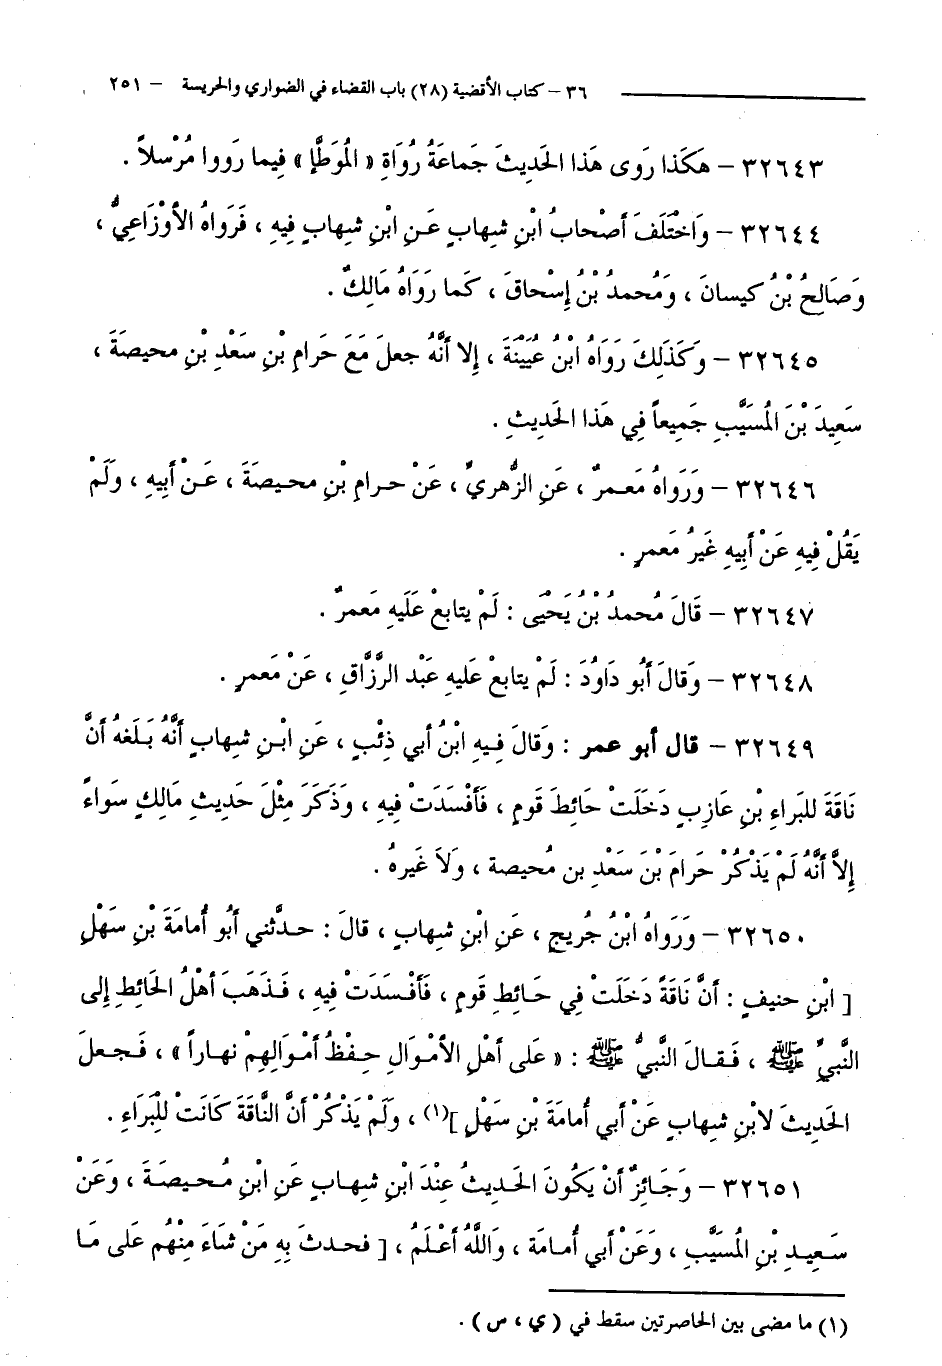 ٣٦ – كتاب الأقضية (٢٨) باب القضاء في الضواري والحريسة – ٢٥١
٣٢٦٤٣ – هَكَذا رَوى هَذا الحَديثَ جَماعَةُ رُوَاةِ « المُوَطَّإِ » فِيما رَووا مُرْسلاً .
٣٢٦٤٤ – وَاخْتَلَفَ أَصْحابُ ابْنِ شِهابٍ عَنِ ابْنِ شِهابٍ فِيهِ ، فَرَواهُ الأَوْزَاعِيُّ ،
وَصَالِحُ بْنُ كيسانَ ، وَمُحمدُ بْنُ إِسْحاقَ ، كَما رَوَاهُ مَالِكٌ .
٣٢٦٤٥ – وَكَذَلِكَ رَوَاهُ ابْنُ عُيَيْنَةَ ، إِلا أَنَّهُ جعلَ مَعَ حَرامِ بْنِ سَعْدِ بْنِ محيصَةَ ،
سَعِيدَ بْنَ المُسَيَّبِ جَمِيعاً فِي هَذا الحَديثِ .
٣٢٦٤٦ – وَرَوَاهُ مَعمرٌ ، عَنِ الزُّهريِّ ، عَنْ حرامِ بْنِ محيصَةَ ، عَنْ أَبِيهِ ، وَلَمْ
يَقُلْ فِيهِ عَنْ أَبِيهِ غَيرُ مَعمرٍ .
٣٢٦٤٧ – قَالَ مُحمدُ بْنُ يَحْيَى : لَمْ يتابعْ عَلَيهِ مَعمرٌ .
٣٢٦٤٨ – وَقالَ أَبُو دَاوُدَ : لَمْ يتابعْ عَليهِ عَبْد الرزَّاقِ ، عَنْ مَعمرٍ .
٣٢٦٤٩ – قال أبو عمر : وَقالَ فِيهِ ابْنُ أَبي ذِئْبٍ ، عَنِ ابْنِ شِهابٍ أَنَّهُ بَلَغهُ أَنَّ
نَاقَةَ للبَراءِ بْنِ عَازِبٍ دَخَلَتْ حَائطَ قَومٍ ، فَأَفْسَدَتْ فِيهِ ، وَذَكَرَ مِثْلَ حَديثِ مَالِكٍ سَواءً
إِلاَّ أَنَّهُ لَمْ يَذْكُرْ حَرامَ بْنَ سَعْدِ بن مُحيصة ، وَلاَ غَيرهُ .
٣٢٦٥٠ – وَرَوَاهُ ابْنُ جُريجٍ ، عَنِ ابْنِ شِهابٍ ، قالَ : حدَّثني أَبُو أُمامَةَ بْنِ سَهْلِ
[ ابْنِ حنيفٍ : أَنَّ نَاقَةً دَخَلَتْ فِي حَائطِ قَومٍ ، فَأَفْسَدَتْ فِيهِ ، فَذَهَبَ أَهْلُ الحَائطِ إِلى
النَّبِيِّ ﷺ ، فَقالَ النَّبيُّ ﷺ : « عَلى أَهْلِ الأَمْوَالِ حِفْظُ أَمْوَالِهِمْ نهاراً » ، فَجعلَ
الحَديثَ لابْنِ شِهابٍ عَنْ أَبي أُمامَةَ بْنِ سَهْلٍ ](١) ، وَلَمْ يَذْكُرْ أَنَّ النَّاقَةَ كَانَتْ لِلْبَرَاءِ .
٣٢٦٥١ – وَجَائِزٌ أَنْ يَكُونَ الحَديثُ عِنْدَ ابْنِ شِهابٍ عَنِ ابْنِ مُحيصَةَ ، وَعَنْ
سَعِيدِ بْنِ المُسَيَّبِ ، وَعَنْ أَبي أُمامَة ، وَاللَّهُ أَعْلَمُ ، [ فحدثَ بِهِ مَنْ شَاءَ مِنْهُم عَلى مَا
(١) ما مضى بين الحاصرتين سقط في ( ي ، س ) .